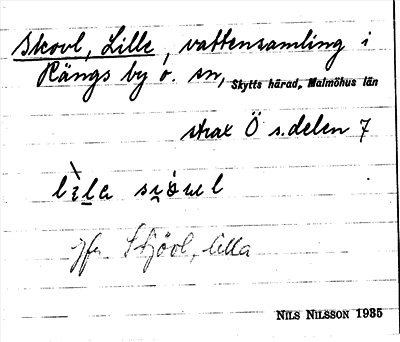 Skovl, Lille, vattensamling i
Rängs by o. sn, Skytts härad, Malmöhus län
strax Ö s. delen 7
jfr Skjövl, lilla
NILS NILSSON 1935